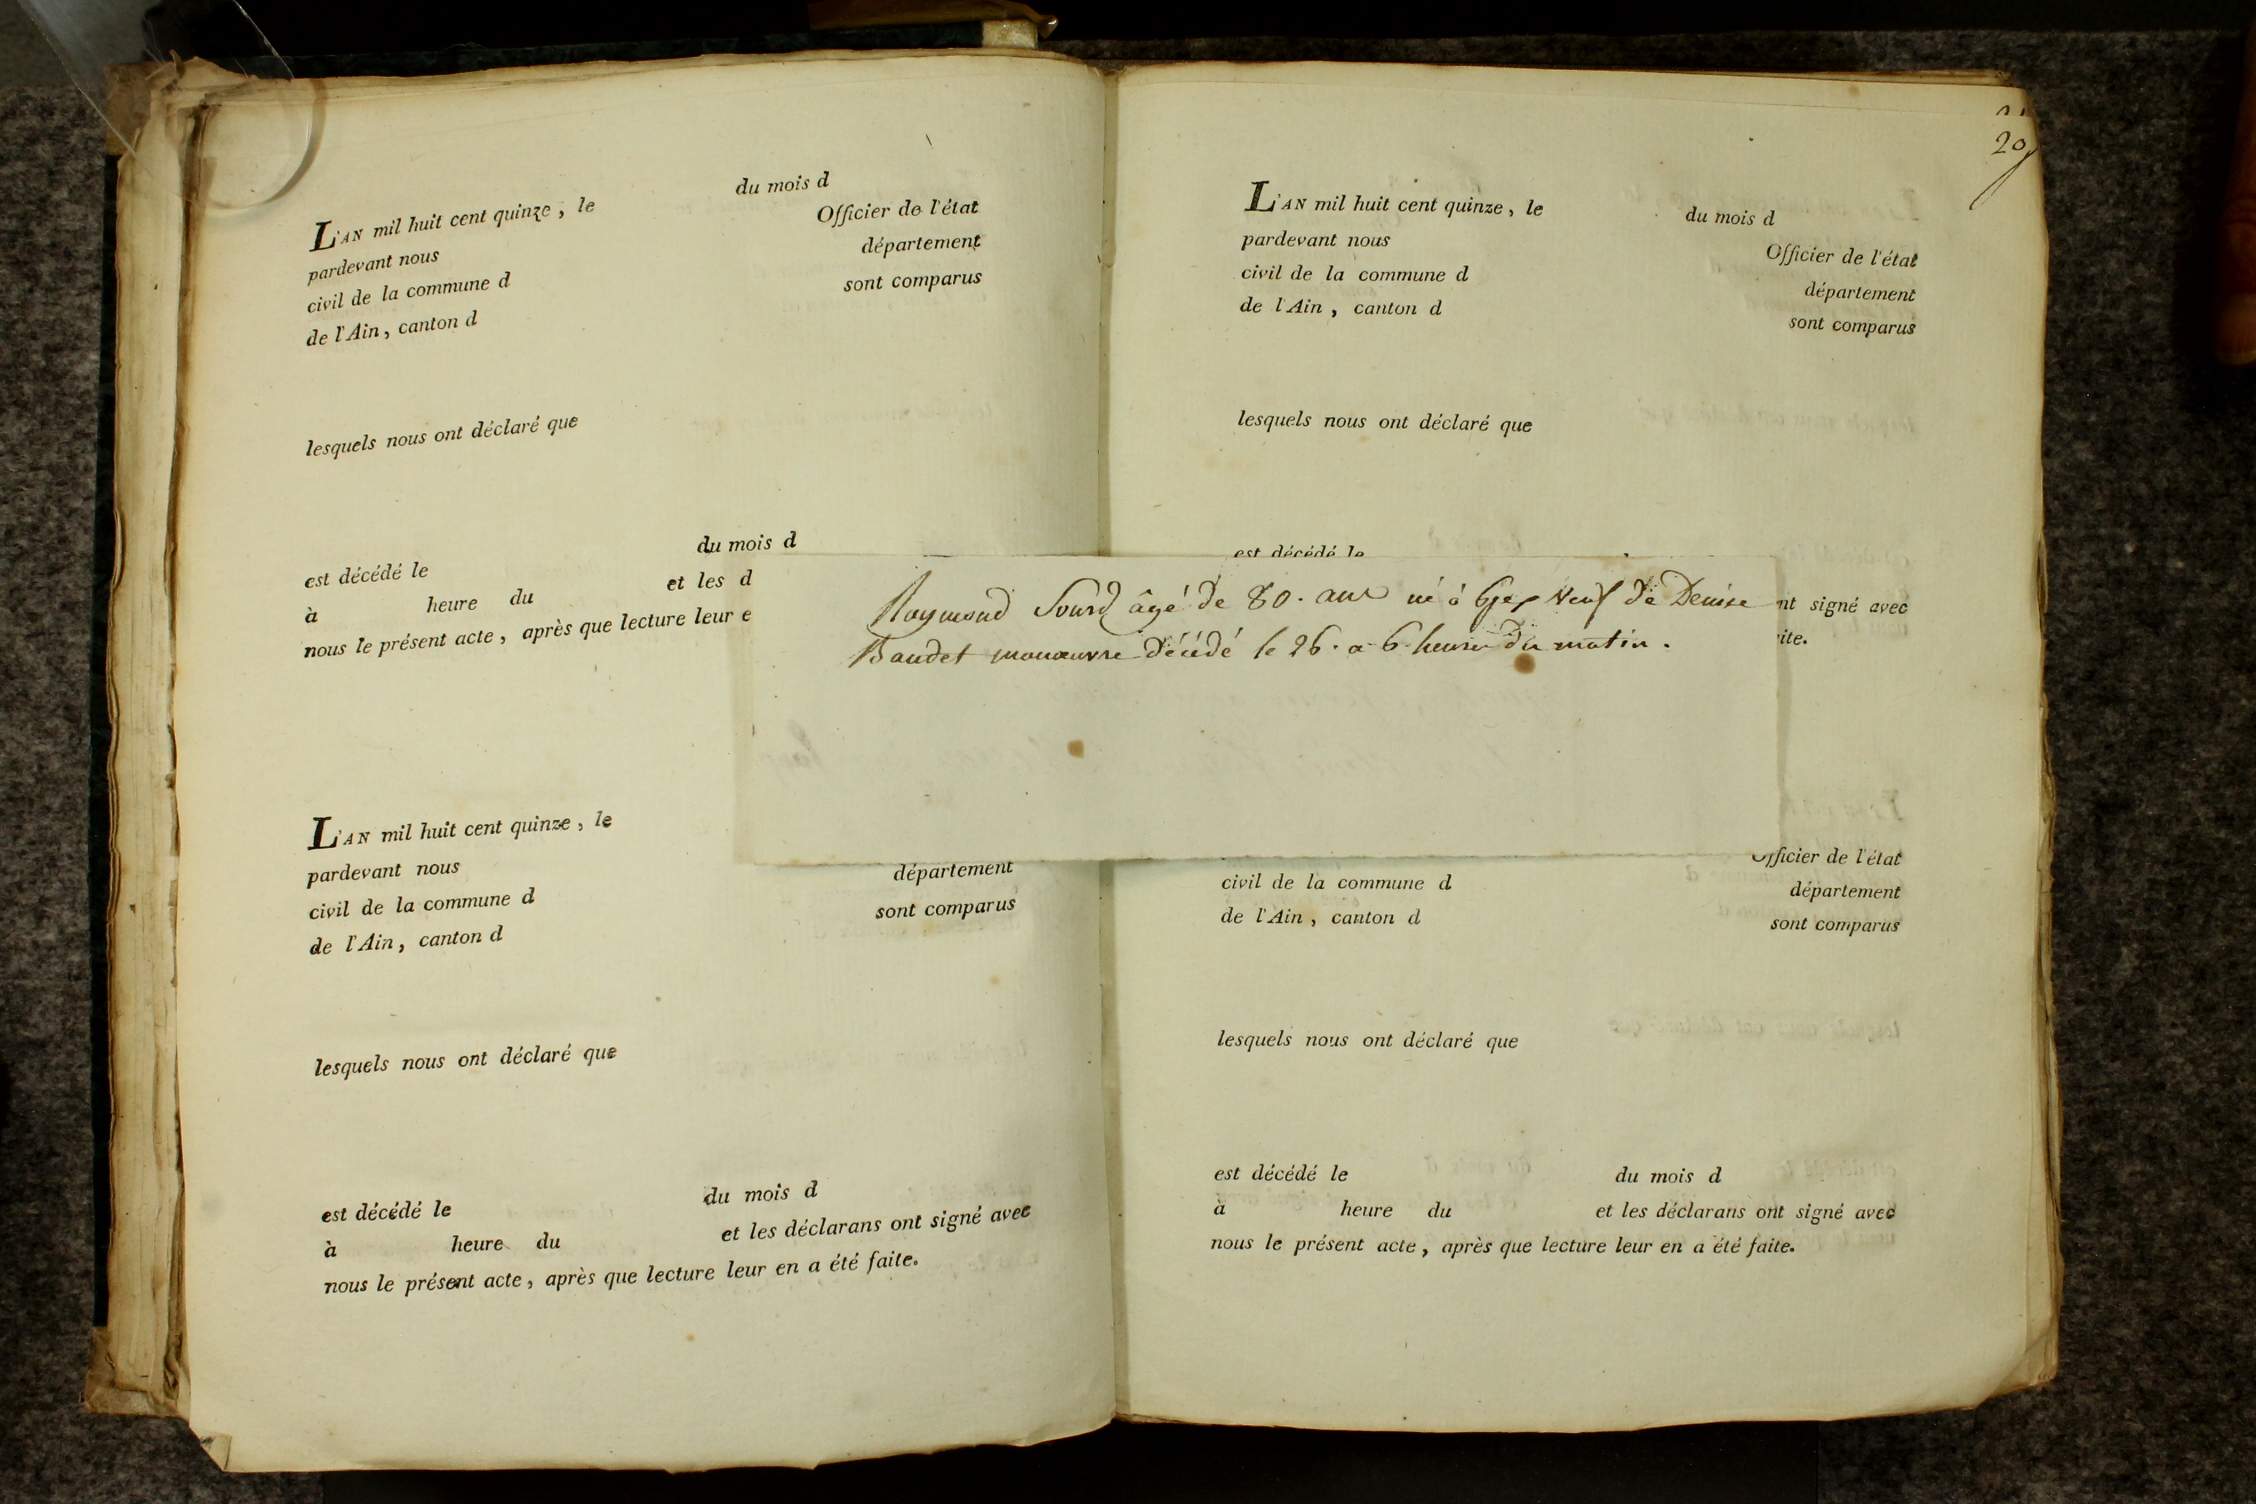 L'AN mil huit cent quinze, le du mois d
pardevant nous Officier de l'état
civil de la commune d département
de l'Ain, canton d sont comparus
lesquels nous ont déclaré que
est décédé le du mois d
à heure du et les d
nous le présent acte, après que lecture leur e
L'AN mil huit cent quinze, le
pardevant nous
civil de la commune d département
de l'Ain, canton d sont comparus
lesquels nous ont déclaré que
est décédé le du mois d
à heure du et les déclarans ont signé avec
nous le présent acte, après que lecture leur en a été faite.
Raymond Sourd âgé de 80. ans né à Gex Veuf de Denise
Baudet manœuvre décédé le 26. a 6 heures du matin.
20
L'AN mil huit cent quinze, le du mois d
pardevant nous Officier de l'état
civil de la commune d département
de l'Ain, canton d sont comparus
lesquels nous ont déclaré que
est décédé le
nt signé avec
ite.
Officier de l'état
civil de la commune d département
de l'Ain, canton d sont comparus
lesquels nous ont déclaré que
est décédé le du mois d
à heure du et les déclarans ont signé avec
nous le présent acte, après que lecture leur en a été faite.